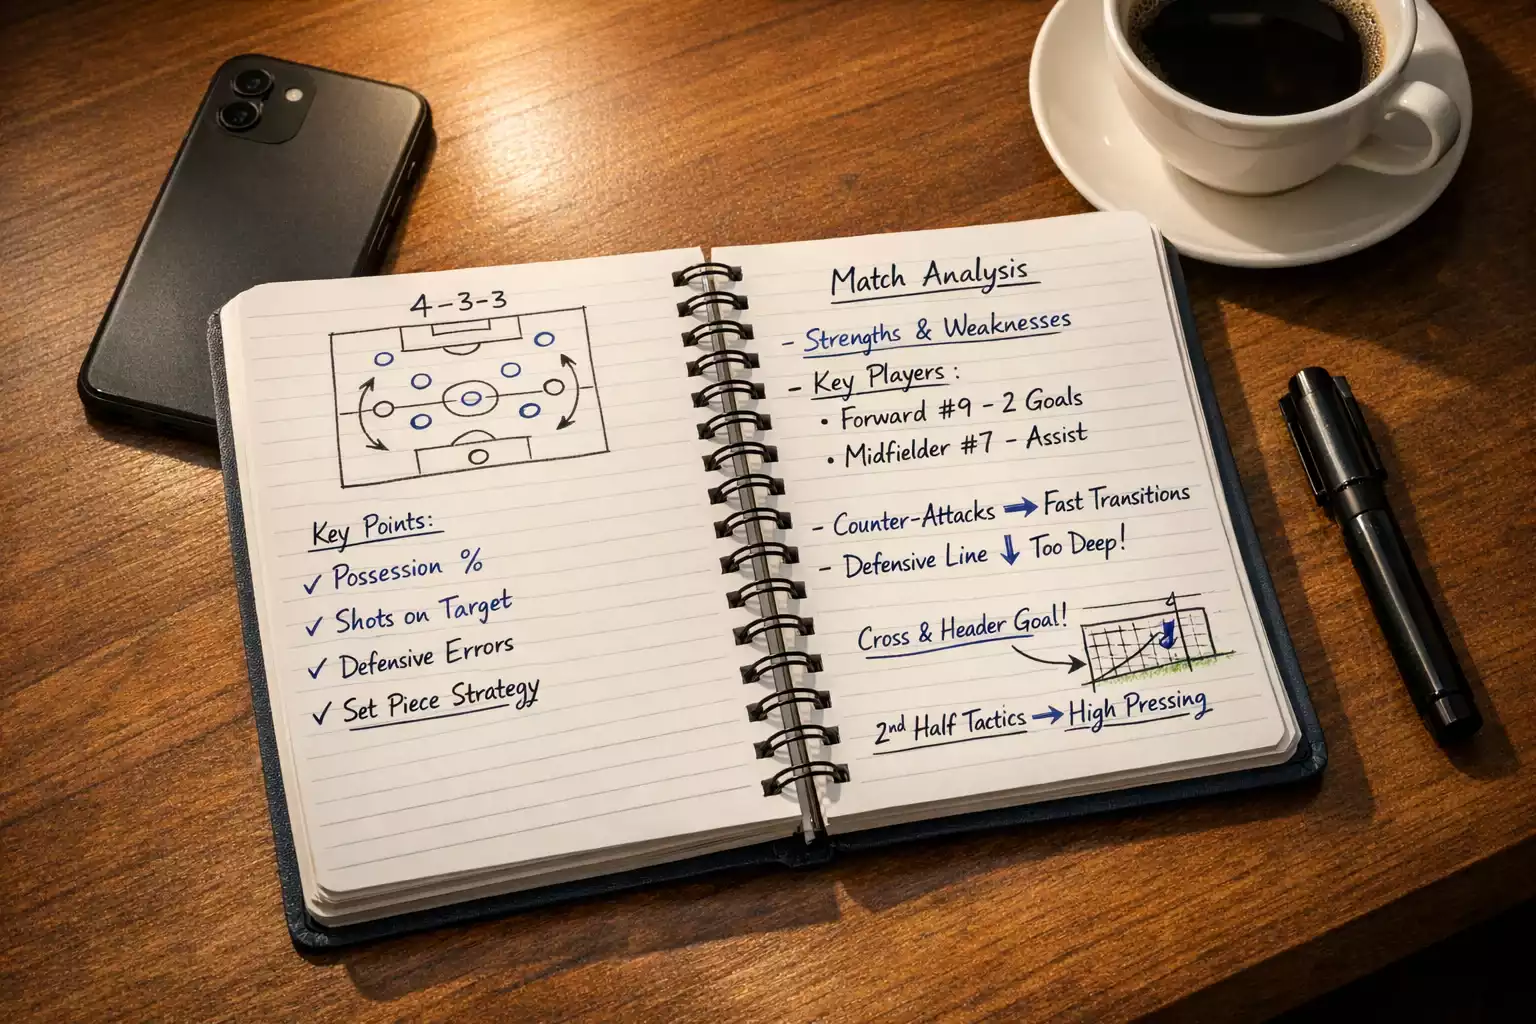 4-3-3
Key Points:
✓ Possession %
✓ Shots on Target
✓ Defensive Errors
✓ Set Piece Strategy
Match Analysis
- Strengths & Weaknesses
- Key Players:
• Forward #9 - 2 Goals
• Midfielder #7 - Assist
- Counter-Attacks → Fast Transitions
- Defensive Line ↓ Too Deep!
Cross & Header Goal!
4
2nd Half Tactics → High Pressing